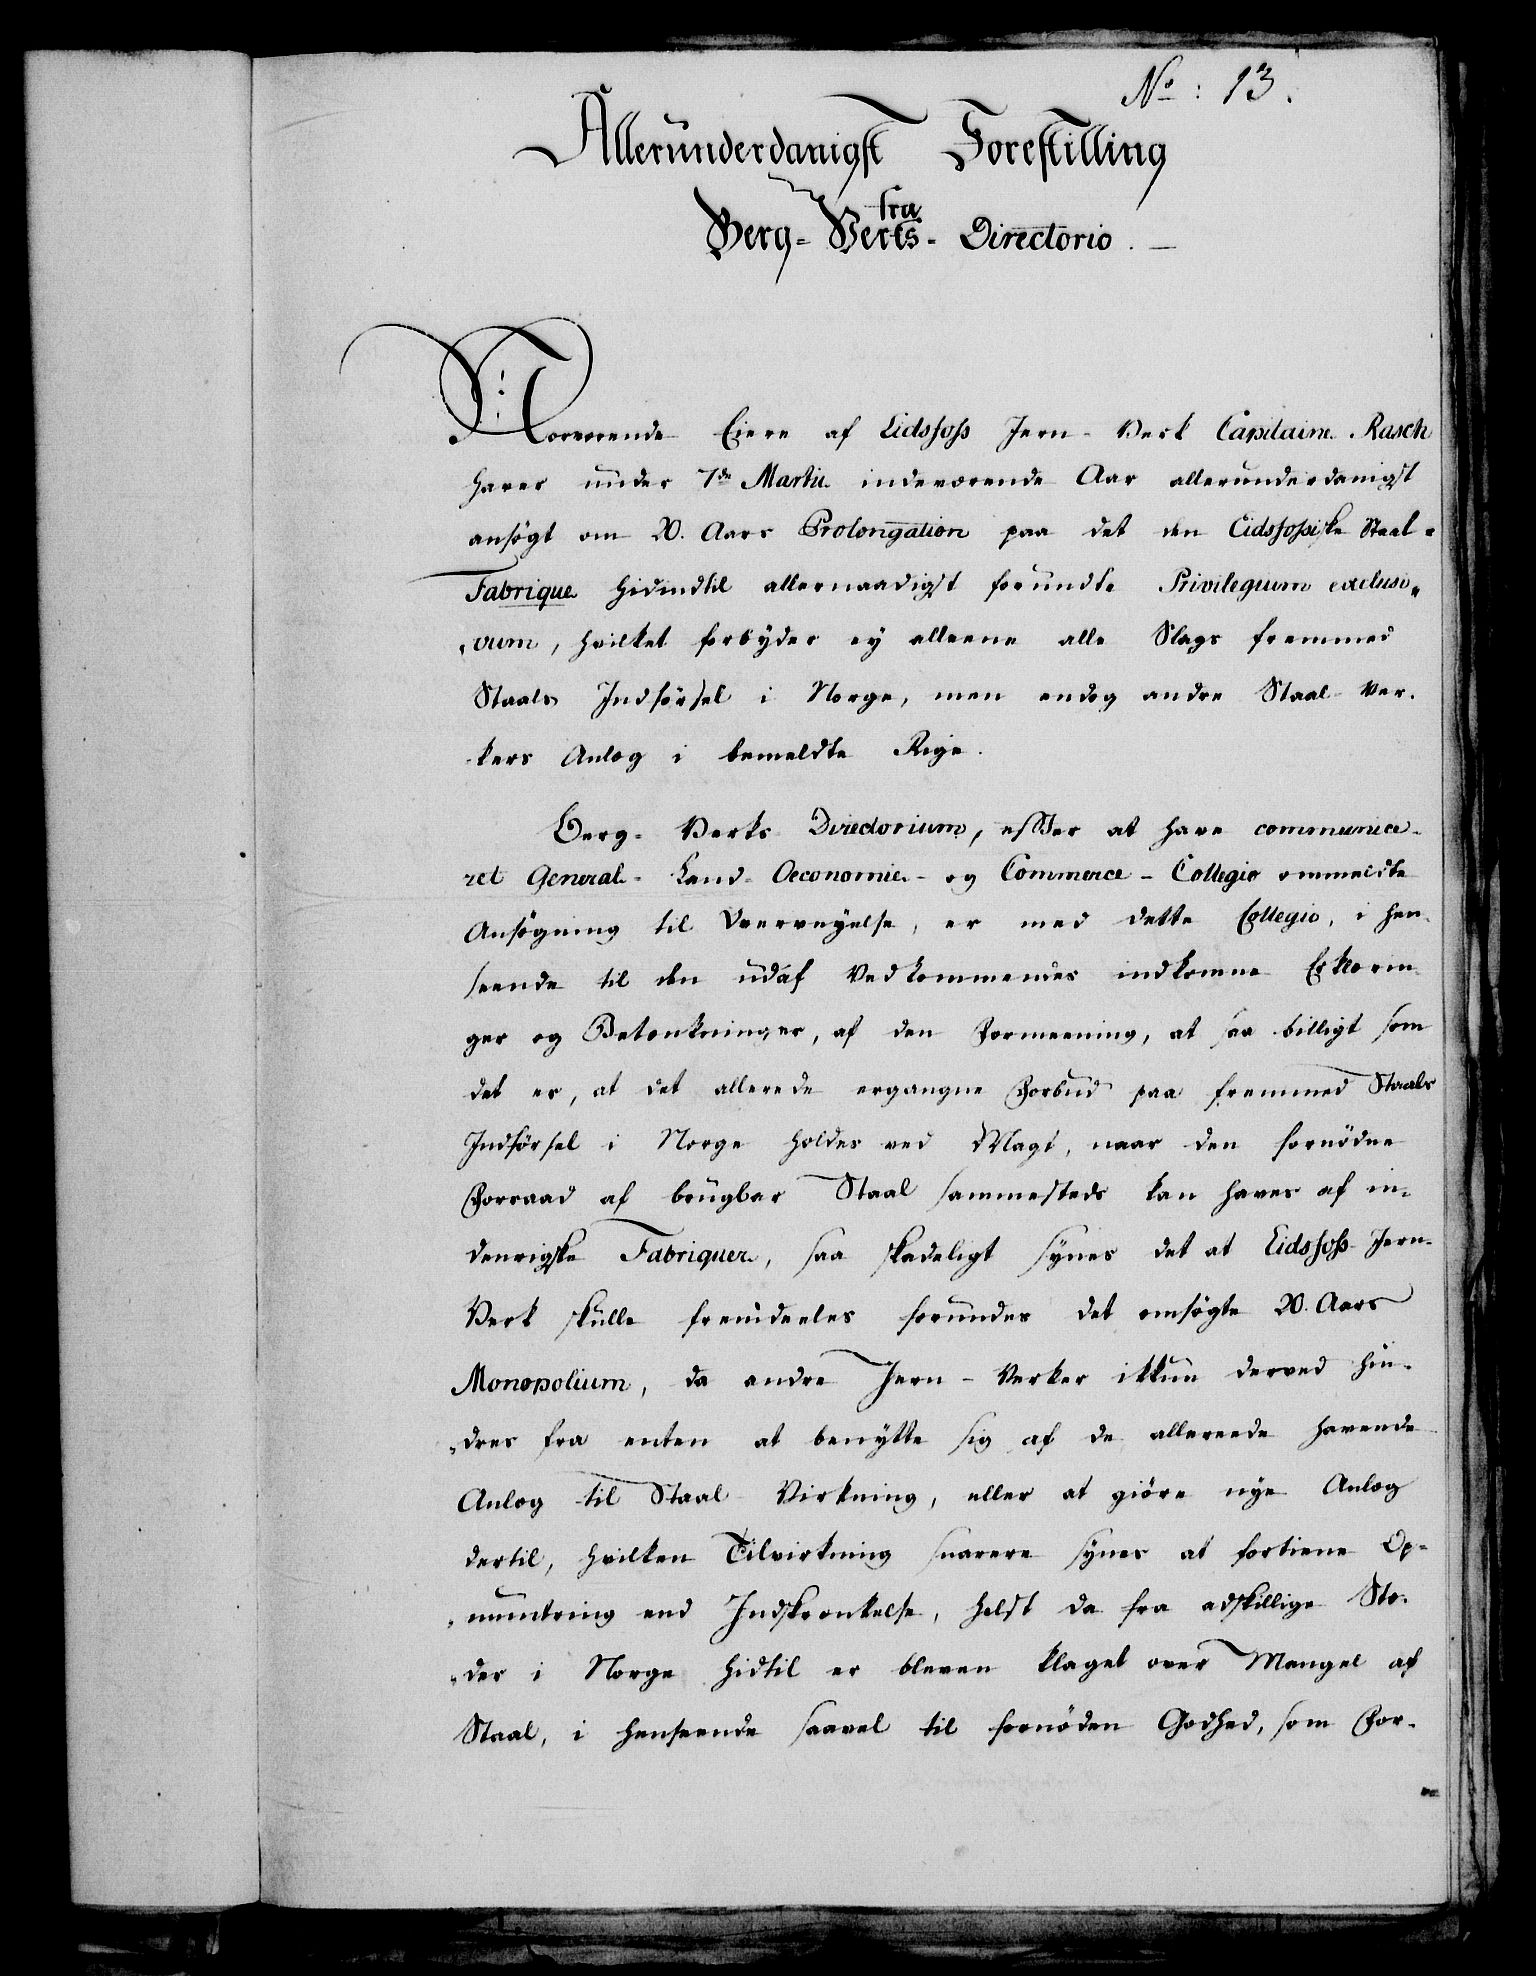 No: 13.
Allerunderdanigst Forestilling
fra
Berg-Verks-Directorio.
Nærværende Eiere af Eidsfoss Jern-Verk Capitaine Rasch
haver under 7de Martii indeværende Aar allerunderdanigst
ansøgt om 20. Aars Prolongation paa det den Eidsfossiske Staal-
Fabrique hidindtil allernaadigst forundte Privilegium exclusi-
vum, hvilket forbyder ey alleene alle Slags fremmed
Staals Indførsel i Norge, men endog andre Staal Ver-
kers Anlæg i bemeldte Rige.
Berg-Verks Directorium, efter at have communice-
ret General-Land-Oeconomie- og Commerce-Collegio ommeldte
Ansøgning til Overveyelse, er med dette Collegio, i Hen-
seende til den udaf Vedkommendes indkomne Erklærin-
ger og Betænkninger, af den Formeening, at saa billigt som
det er, at det allerede ergangne Forbud paa fremmed Staals
Indførsel i Norge holdes ved Magt, naar den fornødne
Forraad af brugbar Staal sammesteds kan haves af in-
denrigske Fabriquer, saa skadeligt synes det at Eidsfoss Jern-
Verk skulle fremdeeles forundes det omsøgte 20. Aars
Monopolium, da andre Jern-Verker ikkun derved hin-
dres fra enten at benytte sig af de allereede havende
Anlæg til Staal Virkning, eller at giøre nye Anlæg
dertil, hvilken Tilvirkning snarere synes at fortiene Op-
muntring end Indskrænkelse, helst da fra adskillige Stæ-
der i Norge hidtil er bleven klaget over Mangel af
Staal, i Henseende saavel til fornøden Godhed, som For-